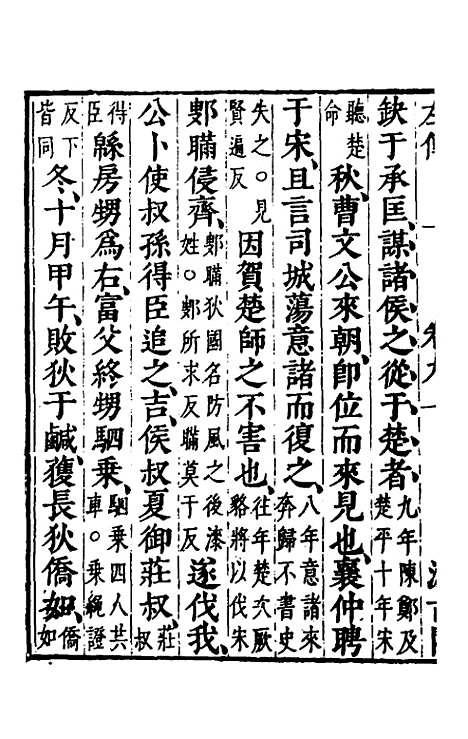 缺于承匡、謀諸侯之從于楚者、九年陳鄭及楚平十年宋
聽楚命秋、曹文公來朝、卽位而來見也、襄仲聘
于宋、且言司城蕩意諸而復之、八年意諸來奔歸不書史
失之○見賢遍反因賀楚師之不害也、往年楚次厥貉將以伐宋
鄋瞞侵齊、鄋瞞狄國名防風之後漆姓○鄋所求反瞞莫干反遂伐我、
公卜使叔孫得臣追之、吉、侯叔夏御莊叔、莊叔
得臣緜房甥爲右、富父終甥駟乗、駟乗四人共車○乗繩證
反下皆同冬、十月甲午、敗狄于鹹、獲長狄僑如、僑如